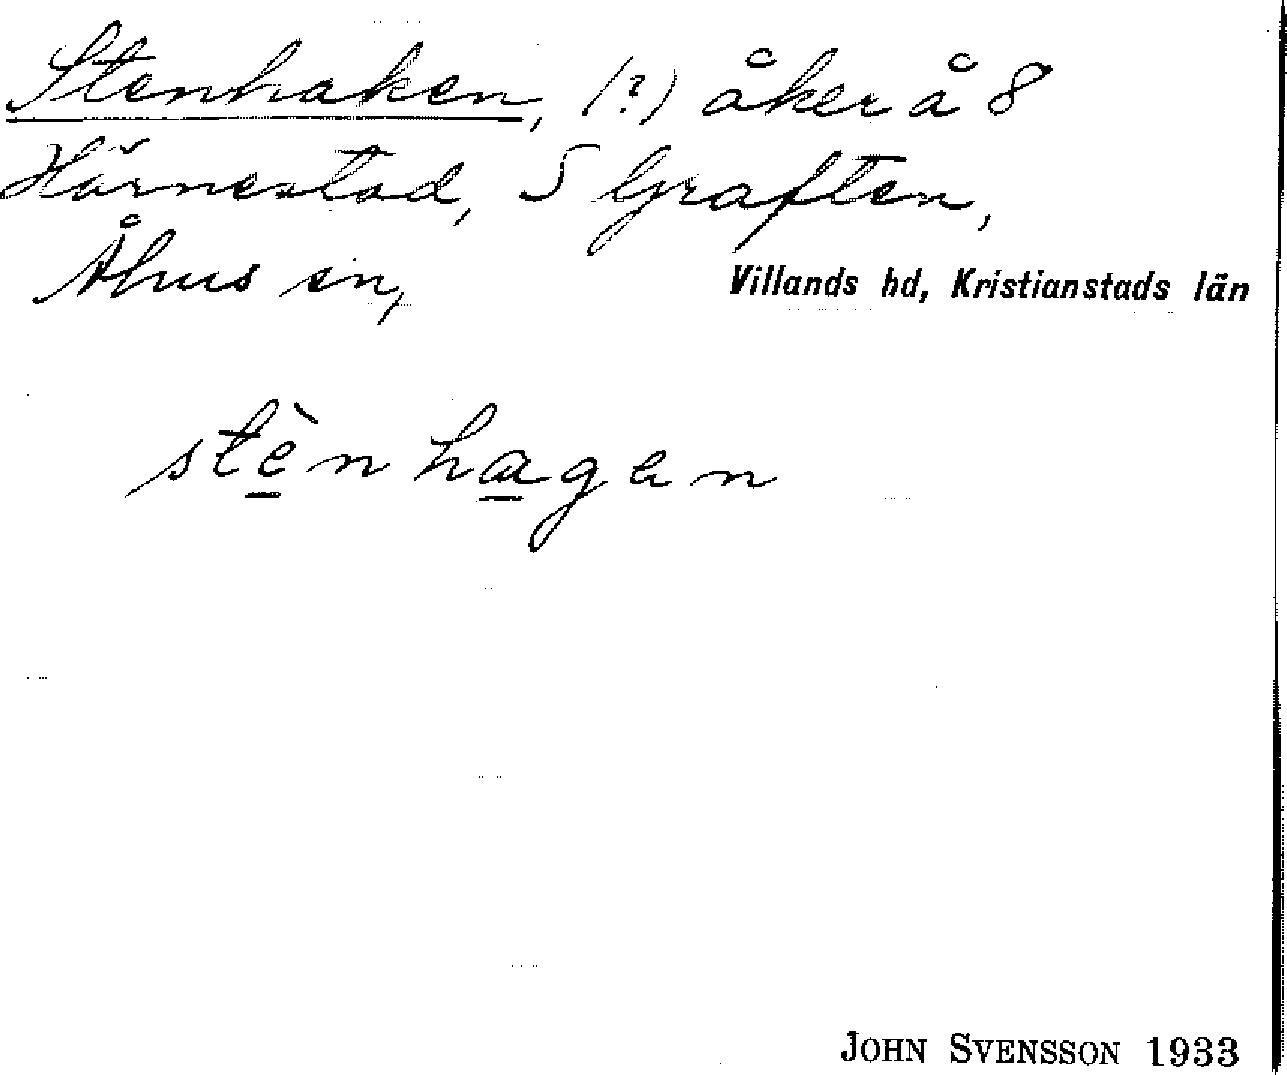 Stenhaken, (?) åker å 8
Härnestad, S Graften,
Åhus sn,
Villands hd, Kristianstads län
stènhagen
JOHN SVENSSON 1933